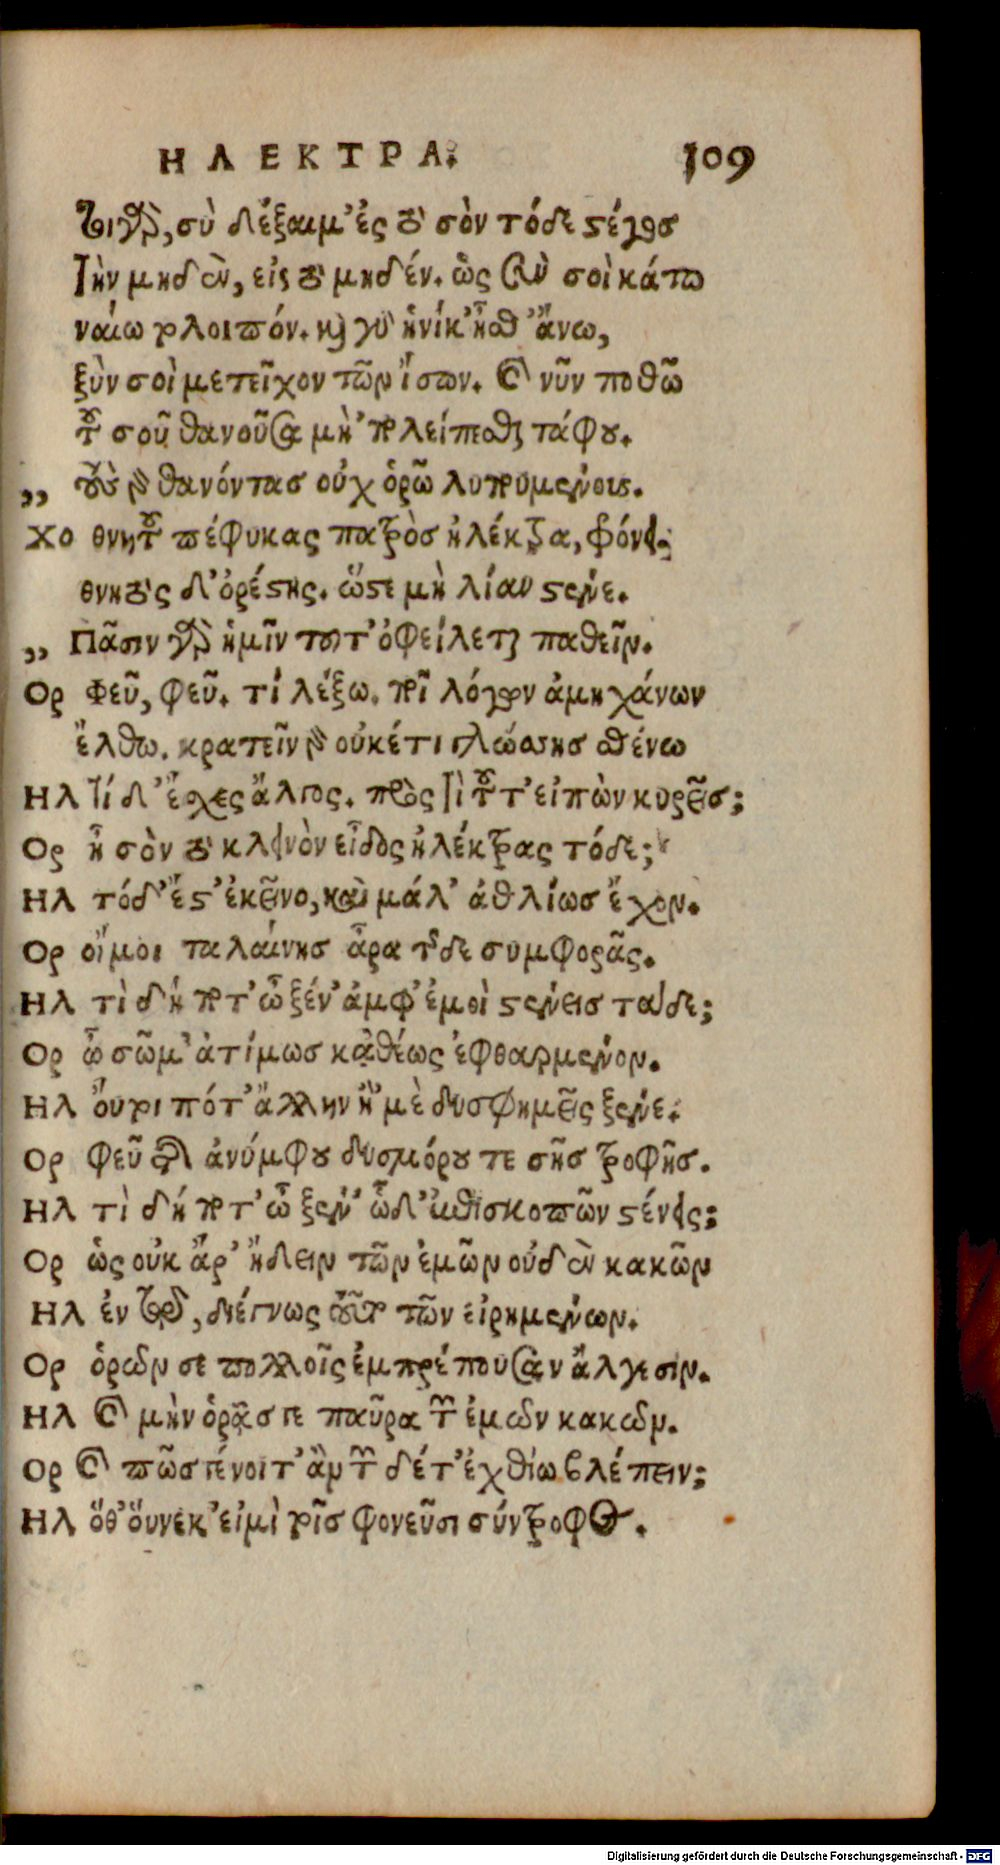 ΗΛΕΚΤΡΑ. 109
τοιγὰρ, σὺ δέξαι μ’ ἐς τὸ σὸν τόδε στέγος
τὴν μηδὲν, εἰς τὸ μηδέν. ὡς σὺν σοὶ κάτω
ναίω τὸ λοιπόν. καὶ γὰρ ἡνίκ’ ἦσθ’ ἄνω,
ξὺν σοὶ μετεῖχον τῶν ἴσων. καὶ νῦν ποθῶ
τοῦ σοῦ θανοῦσα μὴ ’πολείπεσθαι τάφου.
,, τοὺς γὰρ θανόντας οὐχ ὁρῶ λυπουμένους.
ΧΟ θνητοῦ πέφυκας πατρὸς ἠλέκτρα, φρόνει.
θνητὸς δ’ ὀρέστης. ὥστε μὴ λίαν στένε.
,, Πᾶσιν γὰρ ἡμῖν τοῦτ’ ὀφείλεται παθεῖν.
Ορ Φεῦ, φεῦ. τί λέξω. ποῖ λόγων ἀμηχάνων
ἔλθω. κρατεῖν γὰρ οὐκέτι γλώσσης σθένω
Ηλ Τί δ’ ἔσχες ἄλγος. πρὸς τί τοῦτ’ εἰπὼν κυρεῖς;
Ορ ἦ σὸν τὸ κλεινὸν εἶδος ἠλέκτρας τόδε;
Ηλ τόδ’ ἔστ’ ἐκεῖνο, καὶ μάλ’ ἀθλίως ἔχον.
Ορ οἴμοι ταλαίνης ἆρα τῆσδε συμφορᾶς.
Ηλ τί δή ποτ’ ὦ ξέν’ ἀμφ’ ἐμοὶ στένεις τάδε;
Ορ ὦ σῶμ’ ἀτίμως κἀθέως ἐφθαρμένον.
Ηλ οὔτοι πότ’ ἄλλην ἢ ’μὲ δυσφημεῖς ξένε.
Ορ φεῦ τῆς ἀνύμφου δυσμόρου τε σῆς τροφῆς.
Ηλ τί δή ποτ’ ὦ ξέν’ ὧδ’ ἐπισκοπῶν στένεις;
Ορ ὡς οὐκ ἄρ’ ᾔδειν τῶν ἐμῶν οὐδὲν κακῶν
Ηλ ἐν τῷ, διέγνως τοῦτο τῶν εἰρημένων.
Ορ ὁρῶν σε πολλοῖς ἐμπρέπουσαν ἄλγεσιν.
Ηλ καὶ μὴν ὁρᾷς γε παῦρα τῶν ἐμῶν κακῶν.
Ορ καὶ πῶς γένοιτ’ ἂν τῶνδέ τ’ ἐχθίω βλέπειν;
Ηλ ὅθ’ ὅυνεκ’ εἰμὶ τοῖς φονεῦσι σύντροφος.
Digitalisierung gefördert durch die Deutsche Forschungsgemeinschaft - DFG